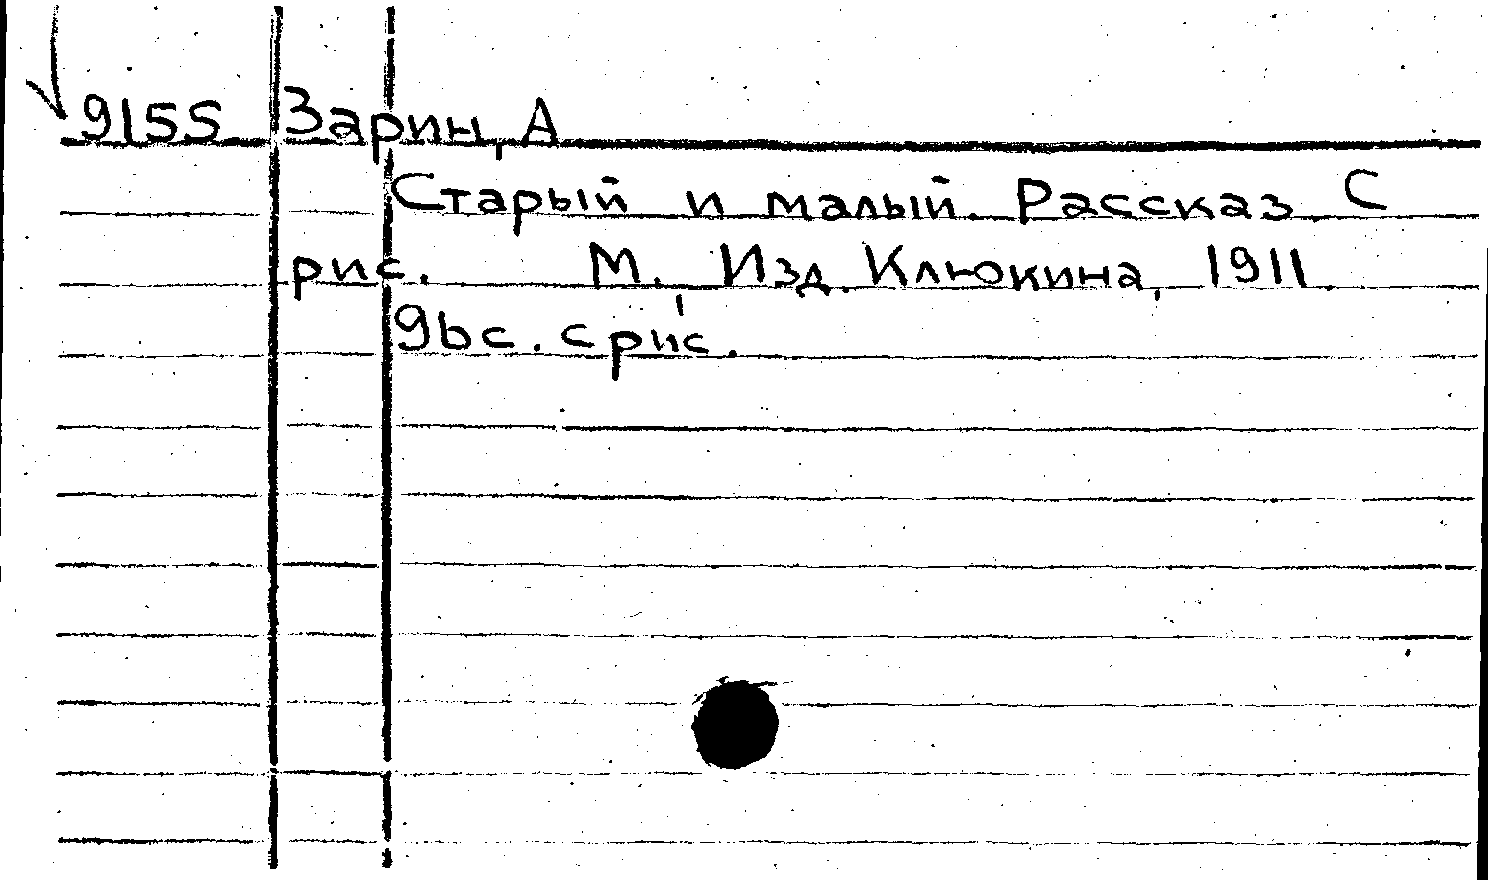 9155 Зарин, А
Старый и малый. Рассказ. С
рис. М., Изд. Клюкина, 1911.
96с. с рис.